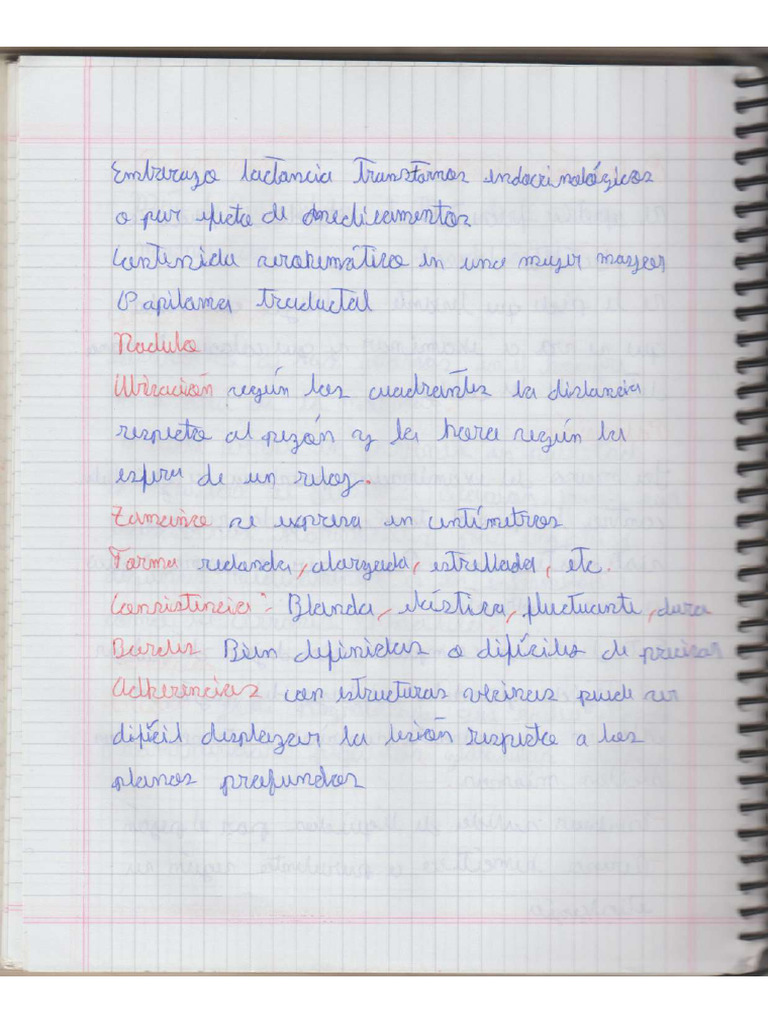 Embarazo lactancia transtornos endocrinológicos
o por efecto de medicamentos
Contenido serohemático en una mujer mayor
Papiloma
Nodulo
Ubicación según los cuadrantes la distancia
respecto al pezón y la hora según la
esfera de un reloj.
Tamaño se expresa en centímetros
Forma redonda, alargada, estrellada, etc.
Consistencia:- Blanda, elástica, fluctuante, dura
Bordes Bien definidos o difíciles de precisar
Adherencias con estructuras vecinas puede ser
difícil desplazar la lesión respecto a los
planos profundos